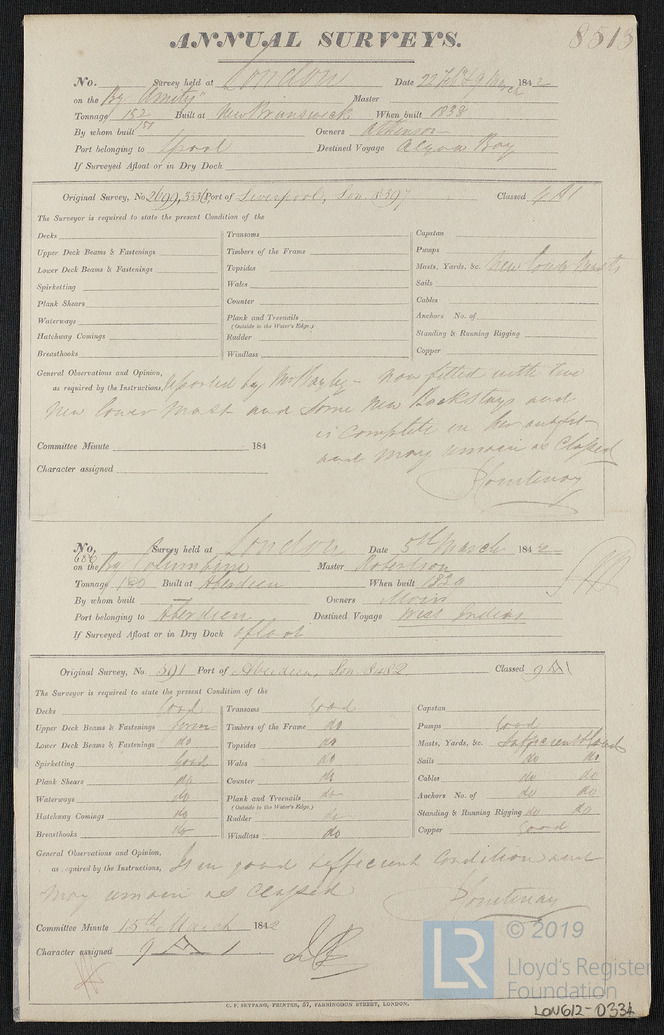 ANNUAL SURVEYS. 8513
No. Survey held at London Date 22 Feby & 9 March 1842
on the Bg "Amity" Master
Tonnage 152 Built at New Brunswick When built 1838
151
By whom built Owners Atkinson
Port belonging to Lpool Destined Voyage Algoa Bay
If Surveyed Afloat or in Dry Dock
Original Survey, No. 2699, Port of Liverpool, Lon 8397 Classed 4 A1
The Surveyor is required to state the present Condition of the
Decks Transoms Capstan
Upper Deck Beams & Fastenings Timbers of the Frame Pumps
Lower Deck Beams & Fastenings Topsides Masts, Yards, &c. New Lower Masts
Spirketting Wales Sails
Plank Shears Counter Cables
Waterways Plank and Treenails Anchors No. of
(Outside to the Water's Edge.)
Hatchway Comings Rudder Standing & Running Rigging
Breasthooks Windlass Copper
General Observations and Opinion,
as required by the Instructions, Reported by Mr Bayley - now fitted with two
new lower mast and some new Backstays and
is complete in her outfit -
and may remain as Classed
Committee Minute 184
Character assigned Courtenay
No. Survey held at London Date 5th March 1842
686
on the Bg Columbine Master Robertson
Tonnage 180 Built at Aberdeen When built 1829
By whom built — Owners Moir
Port belonging to Aberdeen Destined Voyage West Indies
If Surveyed Afloat or in Dry Dock afloat
Original Survey, No 591 Port of Aberdeen, Lon 8482 Classed 9 Æ 1
The Surveyor is required to state the present Condition of the
Decks Good Transoms Good Capstan
Upper Deck Beams & Fastenings Timbers of the Frame do Pumps Good
Lower Deck Beams & Fastenings do Topsides do Masts, Yards, &c. Sufficient & Good
Spirketting Good Wales do Sails do do
Plank Shears do Counter do Cables do do
Waterways do Plank and Treenails do Anchors No. of do do
(Outside to the Water's Edge.)
Hatchway Comings do Rudder do Standing & Running Rigging do do
Breasthooks do Windlass do Copper Good
General Observations and Opinion,
as required by the Instructions, Is in good & efficient Condition and
may remain as Classed
Courtenay
Committee Minute 15th March 1842
Character assigned 9 Æ 1
C. F. SEYFANG, PRINTER, 57, FARRINGDON STREET, LONDON.
LR © 2019
Lloyd's Register
Foundation
LON612-0331